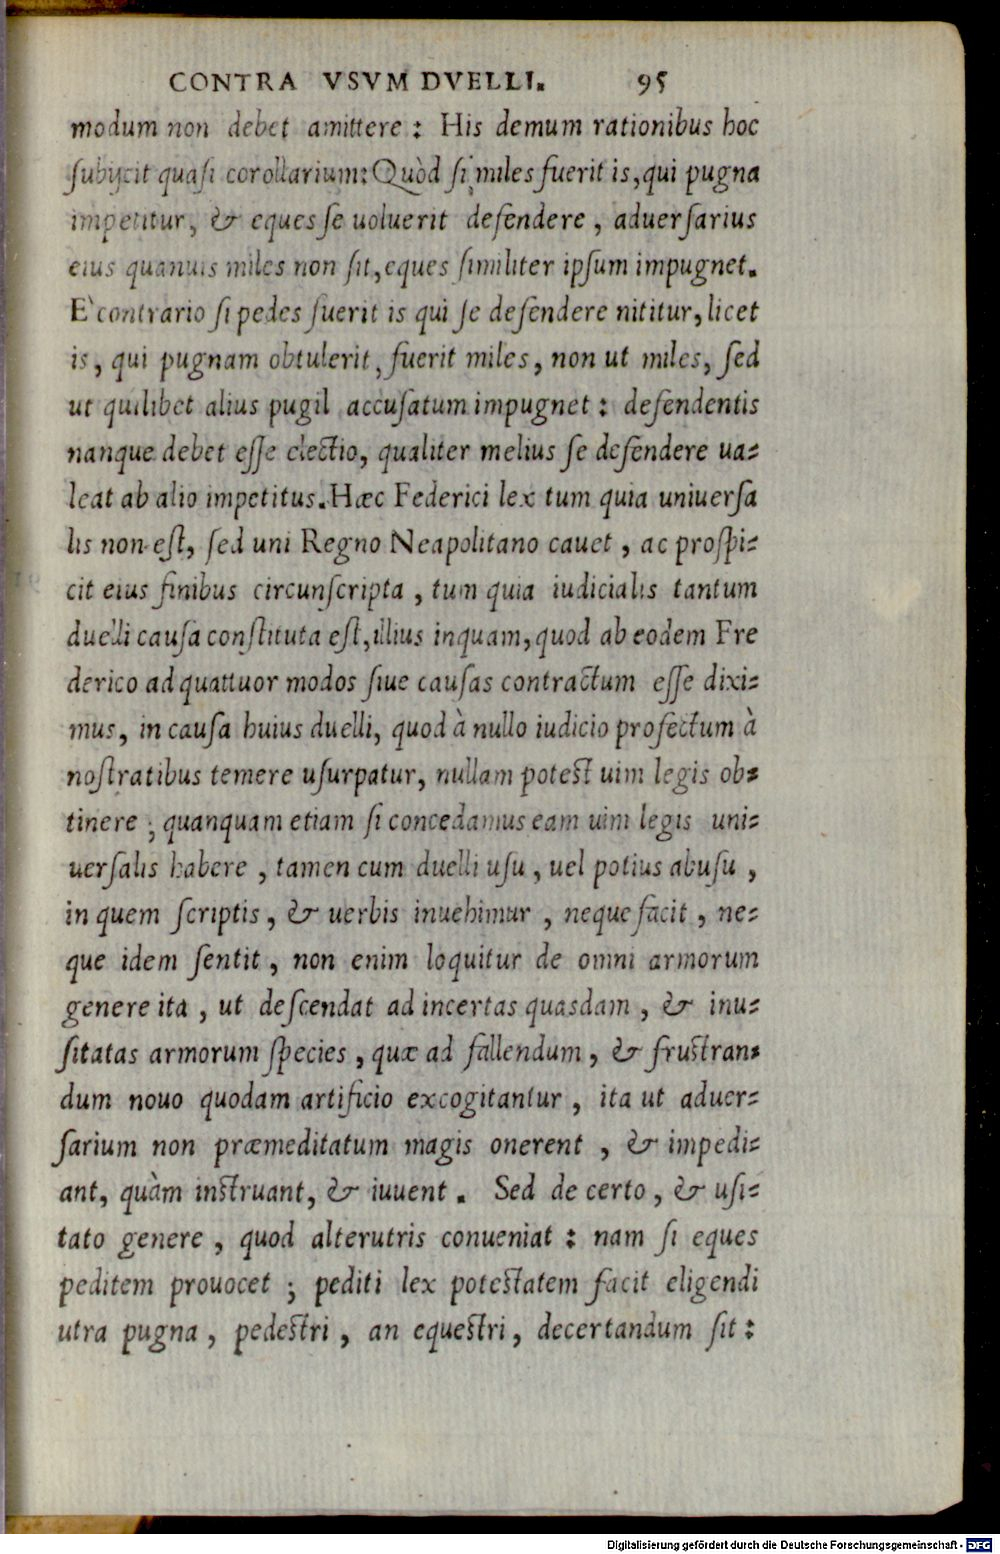 CONTRA VSVM DVELLI. 95
modum non debet amittere: His demum rationibus hoc
subijcit quasi corollarium: Quòd si miles fuerit is, qui pugna
impetitur, & eques se uoluerit defendere, aduersarius
eius quanuis miles non sit, eques similiter ipsum impugnet.
E contrario si pedes fuerit is qui se defendere nititur, licet
is, qui pugnam obtulerit, fuerit miles, non ut miles, sed
ut quilibet alius pugil accusatum impugnet: defendentis
nanque debet esse electio, qualiter melius se defendere ua-
leat ab alio impetitus. Hæc Federici lex tum quia uniuersa
lis non est, sed uni Regno Neapolitano cauet, ac prospi-
cit eius finibus circunscripta, tum quia iudicialis tantum
duelli causa constituta est, illius inquam, quod ab eodem Fre
derico ad quattuor modos siue causas contractum esse dixi-
mus, in causa huius duelli, quod à nullo iudicio profectum à
nostratibus temere usurpatur, nullam potest uim legis ob-
tinere; quanquam etiam si concedamus eam uim legis uni-
uersalis habere, tamen cum duelli usu, uel potius abusu,
in quem scriptis, & uerbis inuehimur, neque facit, ne-
que idem sentit, non enim loquitur de omni armorum
genere ita, ut descendat ad incertas quasdam, & inu-
sitatas armorum species, quæ ad fallendum, & frustran-
dum nouo quodam artificio excogitantur, ita ut aduer-
sarium non præmeditatum magis onerent, & impedi-
ant, quàm instruant, & iuuent. Sed de certo, & usi-
tato genere, quod alterutris conueniat: nam si eques
peditem prouocet; pediti lex potestatem facit eligendi
utra pugna, pedestri, an equestri, decertandum sit:
Digitalisierung gefördert durch die Deutsche Forschungsgemeinschaft - DFG